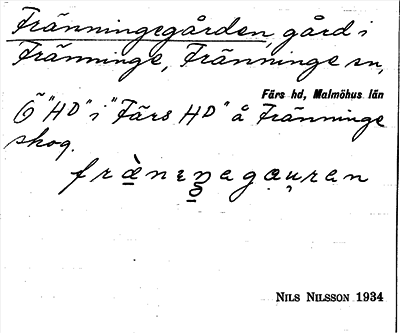 Fränningegården, gård i
Fränninge, Fränninge sn,
Färs hd, Malmöhus län
Ö "HD" i "Färs HD" å Fränninge
skog.
frὰ̈nɛŋagaụran
NILS NILSSON 1934